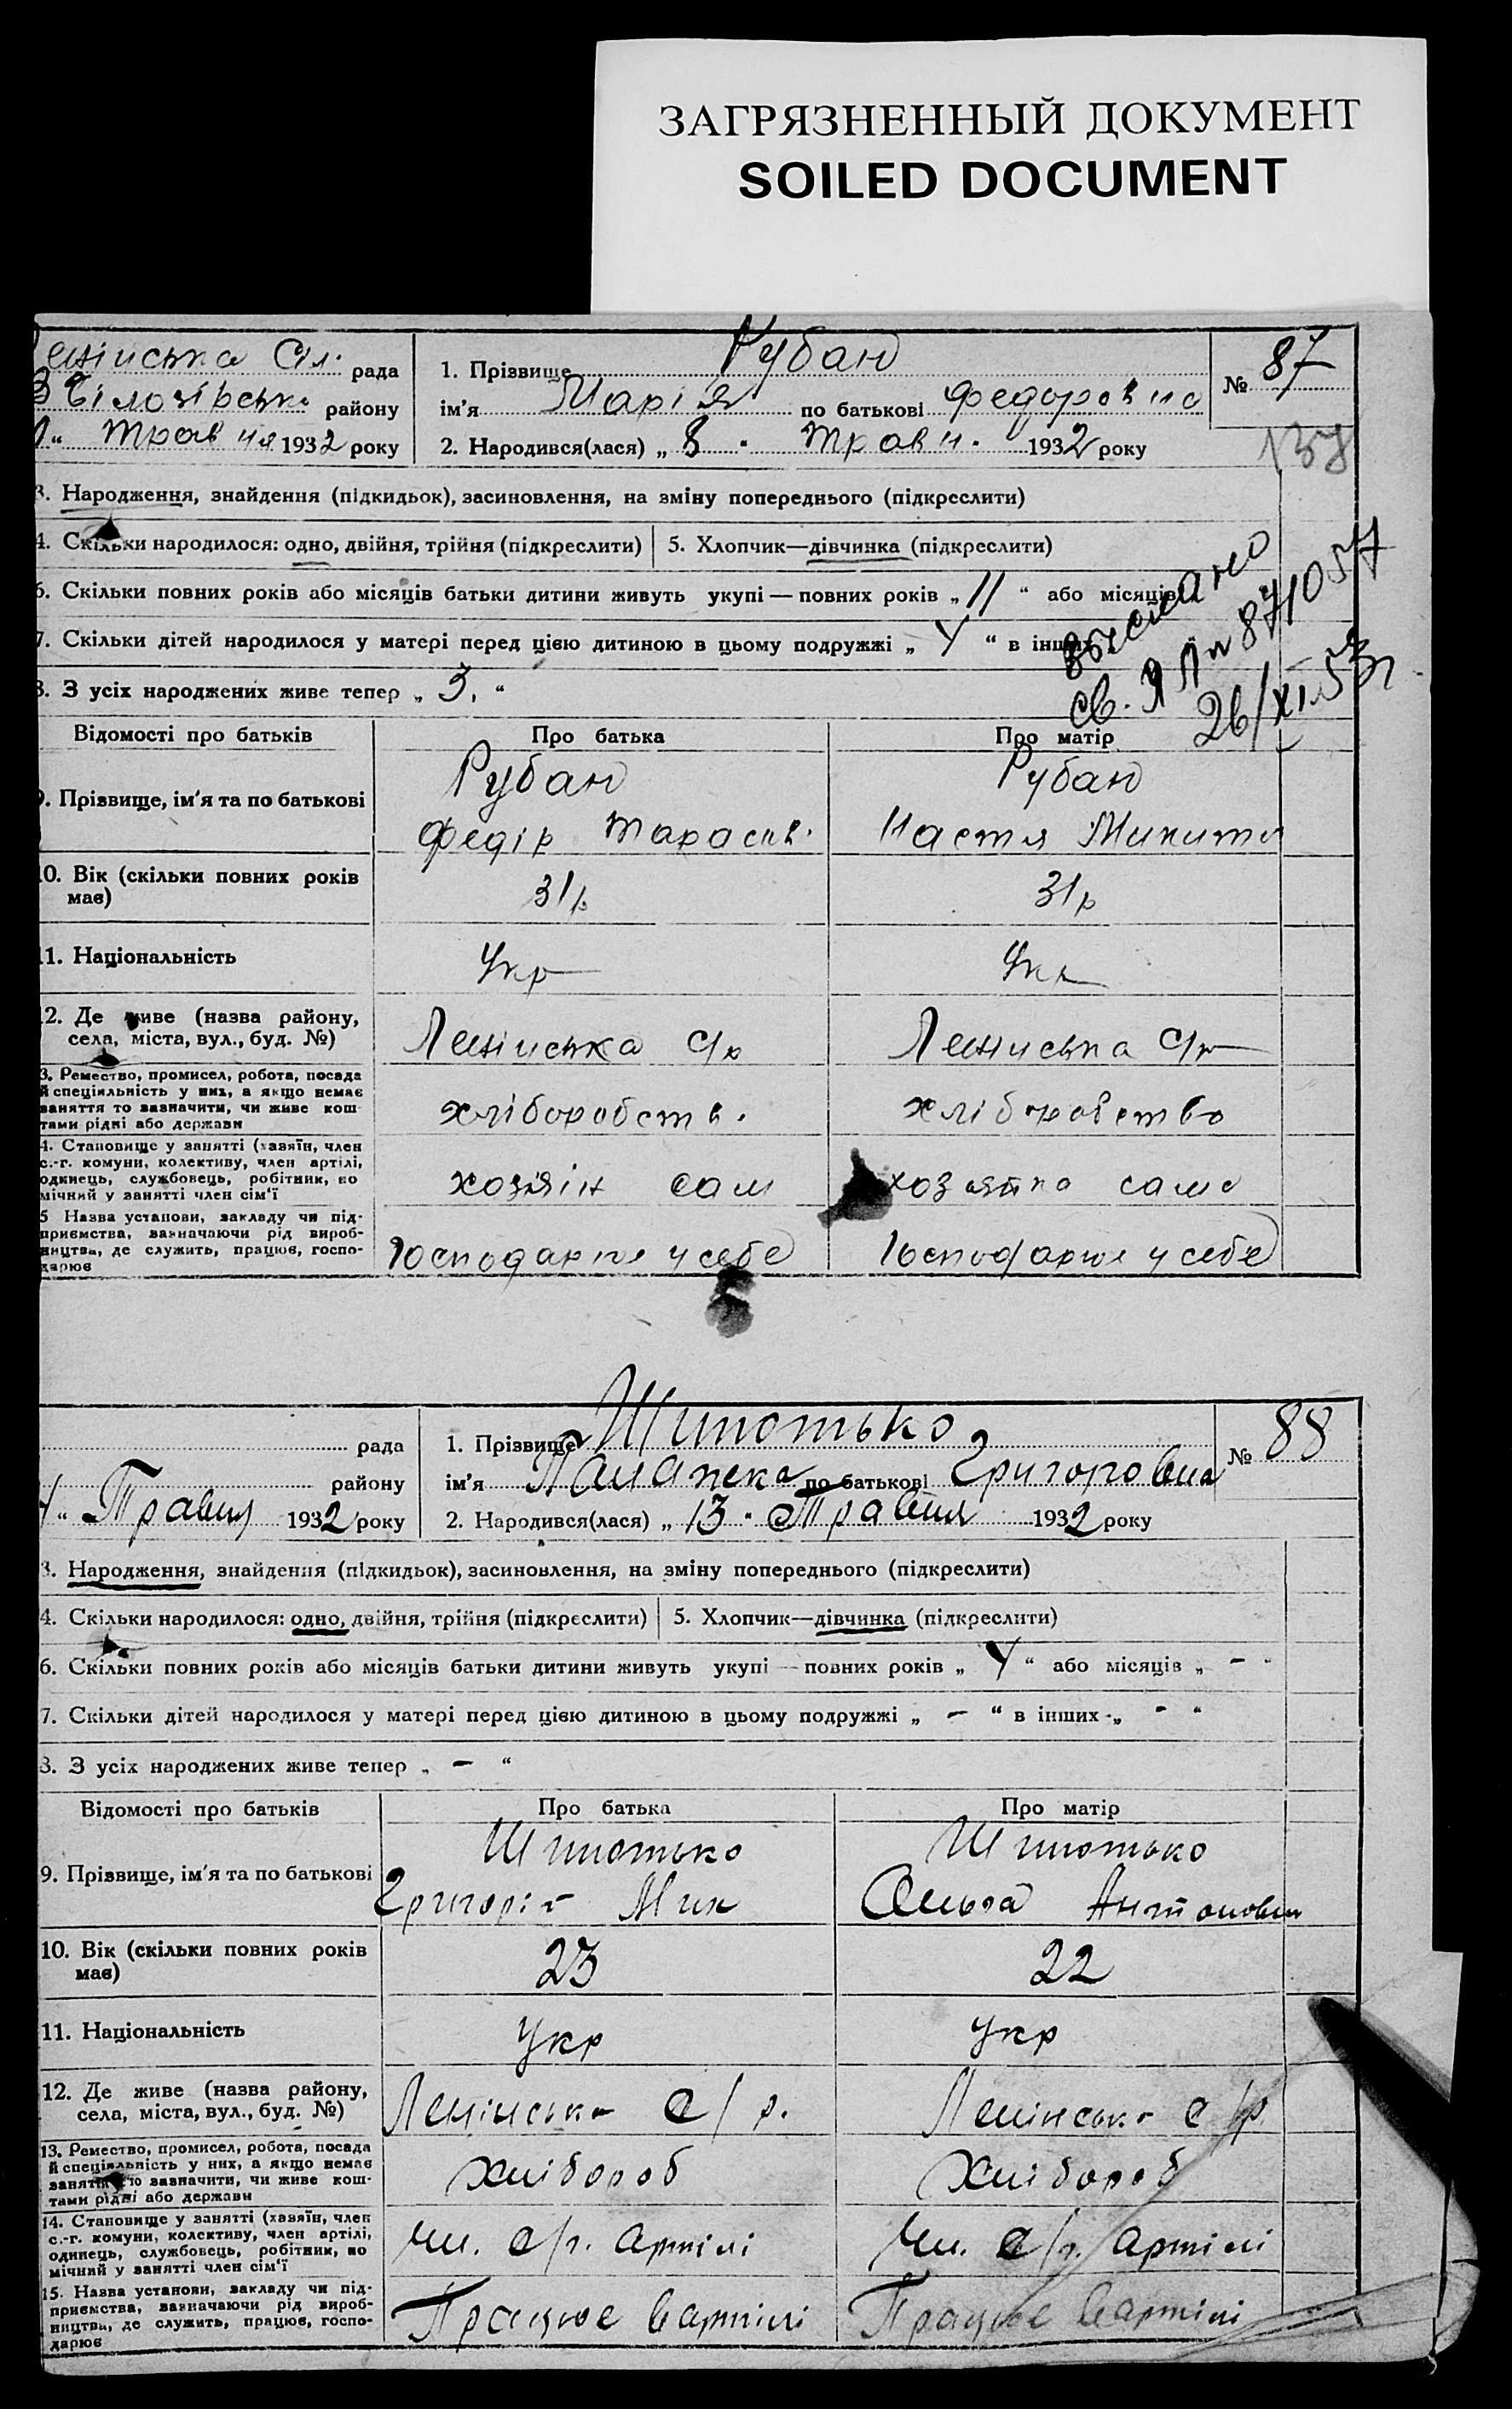 ЗАГРЯЗНЕННЫЙ ДОКУМЕНТ
SOILED DOCUMENT
Ленінська Сіл. рада
Білозірськ. району
Травня 1932 року
1. Прізвище Рубан
ім'я Марія по батькові Федоровна
2. Народився(лася) „ 8 “ Травн. 1932 року
№ 87
138
3. Народження, знайдення (підкидьок), засиновлення, на зміну попереднього (підкреслити)
4. Скільки народилося: одно, двійня, трійня (підкреслити)
5. Хлопчик—дівчинка (підкреслити)
6. Скільки повних років або місяців батьки дитини живуть укупі — повних років „ 11 “ або місяців
7. Скільки дітей народилося у матері перед цією дитиною в цьому подружжі „ 4 “ в інших
8. З усіх народжених живе тепер „ 3. “
выслано
св. Я 871057
26/XI 53г
Відомості про батьків
Про батька
Про матір
9. Прізвище, ім'я та по батькові
Рубан
Федір Тарасов.
Рубан
Настя Микити
10. Вік (скільки повних років має)
31р
31р
11. Національність
Укр
Укр
12. Де живе (назва району,
села, міста, вул., буд. №)
Ленінська С/р
Ленінська С/р
13. Ремество, промисел, робота, посада
й спеціяльність у них, а якщо немає
заняття то зазначити, чи живе кош-
тами рідні або держави
хліборобств.
хліборобство
14. Становище у занятті (хазяїн, член
с.-г. комуни, колективу, член артілі,
одинець, службовець, робітник, по
мічний у занятті член сім'ї
хозяїн сам
хозяйка сама
15 Назва установи, закладу чи під-
приємства, вазначаючи рід вироб-
ництва, де служить, працює, госпо-
дарює
Господарює у себе
Господарює у себе
рада
району
Травня 1932 року
1. Прізвище Шипотько
ім'я Палажка по батькові Григоровна
2. Народився(лася) „ 13 “ Травня 1932 року
№ 88
3. Народження, знайдення (підкидьок), засиновлення, на зміну попереднього (підкреслити)
4. Скільки народилося: одно, двійня, трійня (підкреслити)
5. Хлопчик—дівчинка (підкреслити)
6. Скільки повних років або місяців батьки дитини живуть укупі — повних років „ 4 “ або місяців „ - “
7. Скільки дітей народилося у матері перед цією дитиною в цьому подружжі „ - “ в інших „ - “
8. З усіх народжених живе тепер „ - “
Відомості про батьків
Про батька
Про матір
9. Прізвище, ім'я та по батькові
Шипотько
Григорій Мик
Шипотько
Ольга Антоновна
10. Вік (скільки повних років
має)
23
22
11. Національність
Укр
Укр
12. Де живе (назва району,
села, міста, вул., буд. №)
Ленінська С/р.
Ленінська с/р
13. Ремество, промисел, робота, посада
й спеціяльність у них, а якщо немає
заняття то зазначити, чи живе кош-
тами рідні або держави
Хлібороб
Хлібороб
14. Становище у занятті (хазяїн, член
с.-г. комуни, колективу, член артілі,
одинець, службовець, робітник, по
мічний у занятті член сім'ї
Чл. с/г. артілі
Чл. с/г. артілі
15. Назва установи, закладу чи під-
приємства, вазначаючи рід вироб-
ництва, де служить, працює, госпо-
дарює
Працює в артілі
Працює в артілі